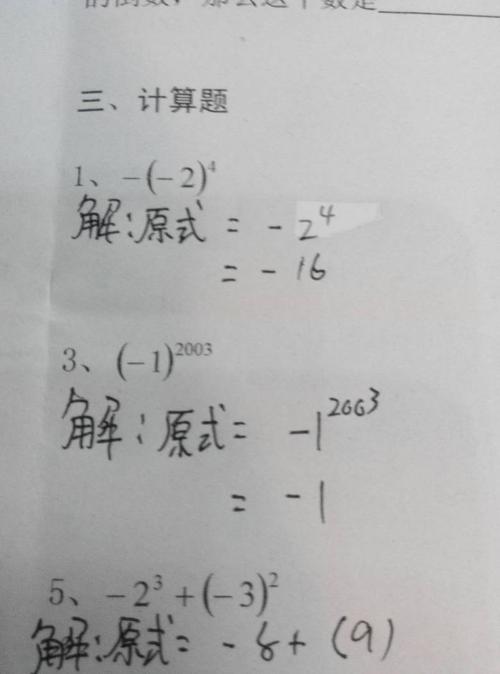 的倒数，那么这个数是
三、计算题
1、-(-2)⁴
解:原式 = -2⁴
= -16
3、(-1)²⁰⁰³
解:原式= -1²⁰⁰³
= -1
5、-2³+(-3)²
解:原式= -8+(9)